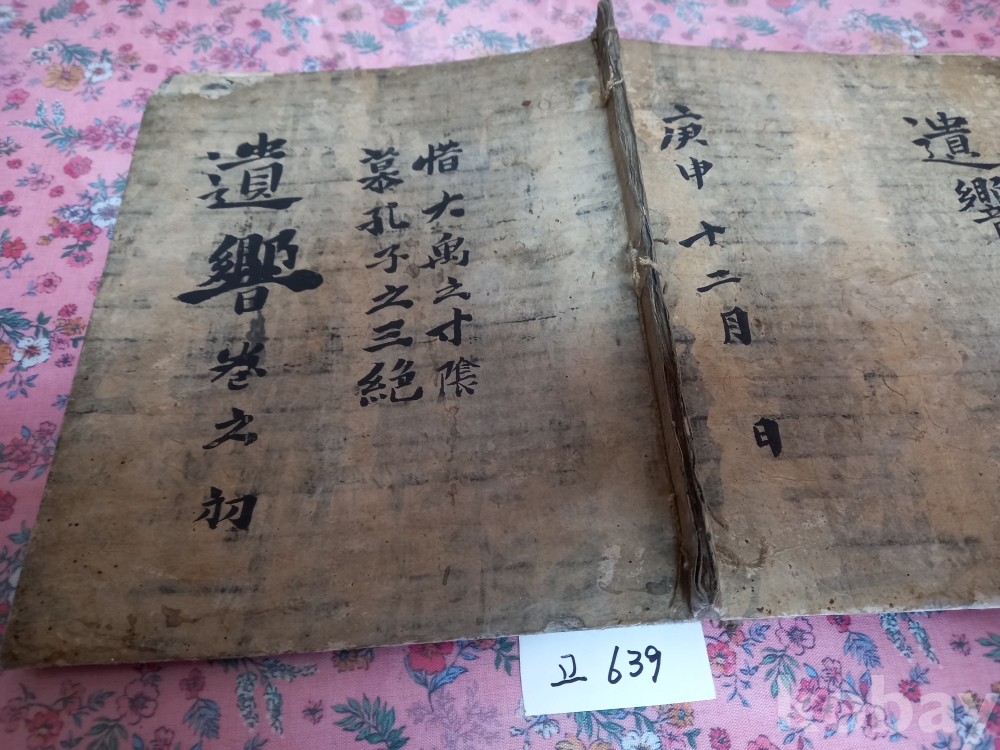 遺響
庚申 十二月 日
惜大禹之寸隂
慕孔子之三絶
遺響卷之羽
고 639
kobay